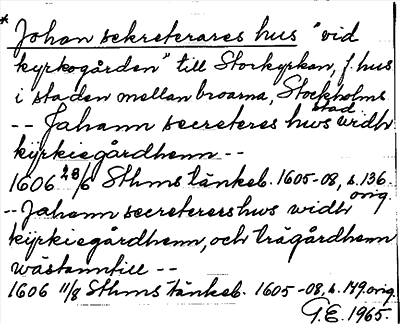 * Johan sekreterares hus "vid
kyrkogården" till Storkyrkan, f. hus
i staden mellan broarna, Stockholms
stad
-- Jahann secreteres hws widh
kÿrkiegårdhenn --
1606 28/6 Sthms tänkeb. 1605-08, s. 136.
orig.
-- Jahann secreterers hws widh
kÿrkiegårdhenn, och trägårdhenn
wästanntill --
1606 11/8 Sthms tänkeb. 1605-08, s. 149. orig.
G.E. 1965.